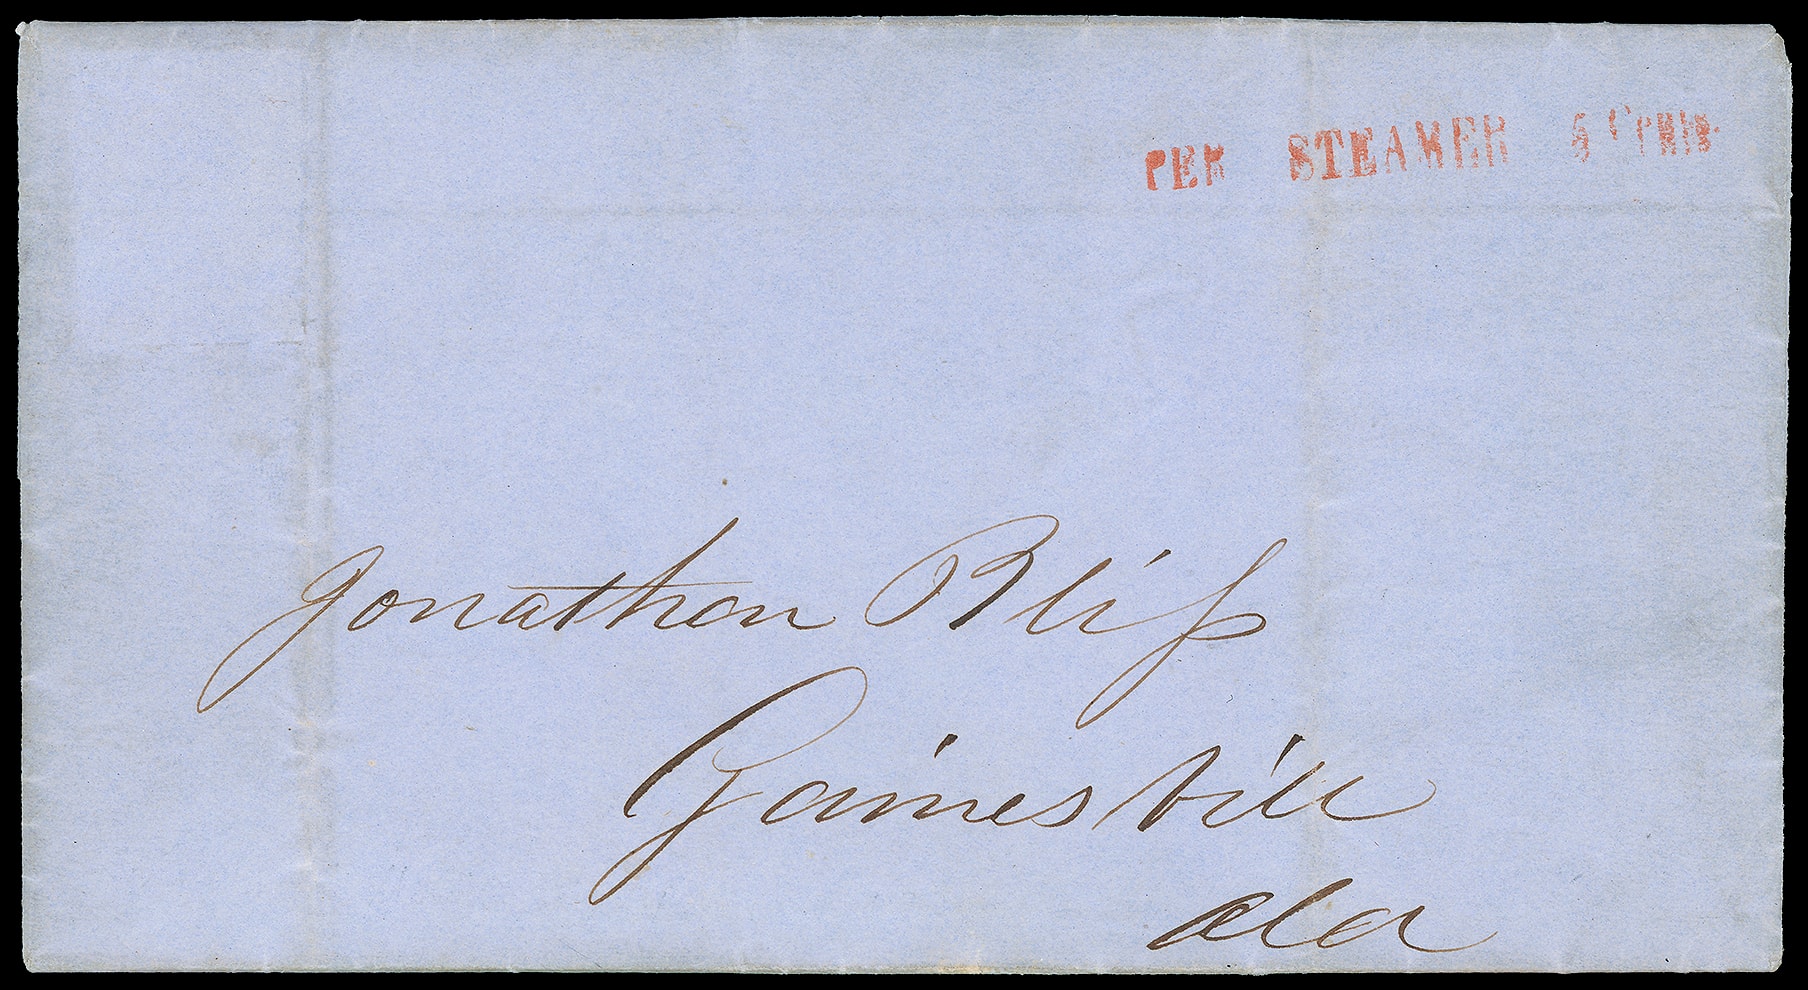 PER STEAMER 5 Cents.
Jonathan Bliſs
Gainesville
Ala